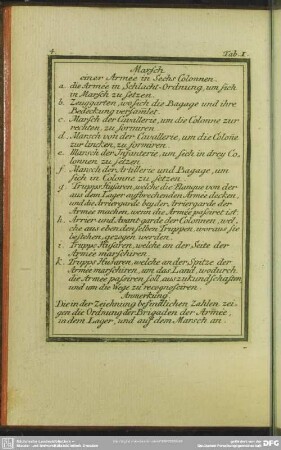 4.
Tab. I.
Marsch
einer Armée in Sechs Colonnen.
a. die Armée in Schlacht-Ordnung, um sich
in Marsch zu setzen.
b. Zeuggarten, wo sich die Bagage und ihre
Bedeckung versamlet.
c. Marsch der Cavallerie, um die Colonne zur
rechten, zu formiren
d. Marsch von der Cavallerie, um die Colone
zur lincken, zu formiren.
e. Marsch der Infanterie, um sich in drey Co,
lonnen zu setzen
f. Marsch der Artillerie und Bagage, um
sich in Colonne zu setzen
g. Trupps Husaren, welche die Flanque von der
aus dem Lager aufbrechenden Armée decken,
und die Arriergarde bey der Arriergarde der
Armée machen, wenn die Armée passiret ist.
h. Arrier und Avant garde der Colonnen, wel,
che aus eben denselben Truppen, woraus sie
bestehen, gezogen werden.
i. Trupps Husaren, welche an der Seite der
Armée marschiren
k. Trupps Husaren, welche an der Spitze der
Armée marschiren, um das Land, wodurch
die Armée passiren soll, auszukundschaften
und um die Wege zu recognosciren.
Anmerkung
Die in der Zeichnung befindlichen Zahlen zei,
gen die Ordnung der Brigaden der Armée,
in dem Lager, und auf dem Marsch an.
DFG